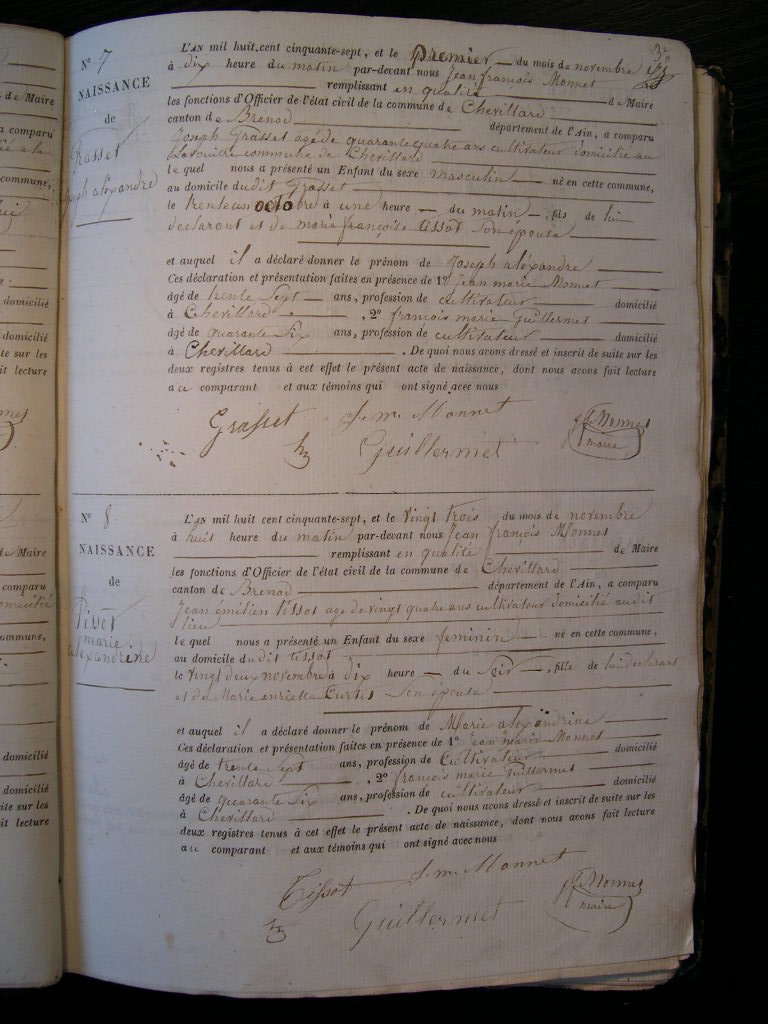 3
N° 7
NAISSANCE
de
Grasset
Joseph alexandre
L'AN mil huit cent cinquante-sept, et le Premier du mois de novembre
à dix heure du matin par-devant nous Jean françois Monnet
remplissant en qualité de Maire
les fonctions d'Officier de l'état civil de la commune de Chevillard
canton de Brenod département de l'Ain, a comparu
Joseph Grasset agé de quarante quatre ans cultivateur domicilié au
commune de Chevillard
le quel nous a présenté un Enfant du sexe masculin né en cette commune,
au domicile dudit Grasset
le trente un octobre à une heure du matin, fils de lui
declarant et de marie françoise tissot son epouse
et auquel il a déclaré donner le prénom de Joseph alexandre
Ces déclaration et présentation faites en présence de 1° Jean marie Monnet
âgé de trente Sept ans, profession de cultivateur domicilié
à Chevillard, 2° françois marie Guillermet
âgé de quarante Six ans, profession de cultivateur domicilié
à Chevillard. De quoi nous avons dressé et inscrit de suite sur les
deux registres tenus à cet effet le présent acte de naissance, dont nous avons fait lecture
au comparant et aux témoins qui ont signé avec nous
Grasset J. m. Monnet
Guillermet
jf Monnet
maire
N° 8
NAISSANCE
de
Tissot
marie
alexandrine
L'AN mil huit cent cinquante-sept, et le vingt trois du mois de novembre
à huit heure du matin par-devant nous Jean françois Monnet
remplissant en qualité de Maire
les fonctions d'Officier de l'état civil de la commune de Chevillard
canton de Brenod département de l'Ain, a comparu
Jean émilien tissot age de vingt quatre ans cultivateur domicilié audit
lieu
le quel nous a présenté un Enfant du sexe feminin né en cette commune,
au domicile dudit tissot
le vingt deux novembre à dix heure du Soir, fille de lui declarant
et de Marie enriette Curtet Son epouse
et auquel il a déclaré donner le prénom de Marie alexandrine
Ces déclaration et présentation faites en présence de 1° jean marie Monnet
âgé de trente Sept ans, profession de Cultivateur domicilié
à Chevillard, 2° françois marie Guillermet
âgé de quarante Six ans, profession de cultivateur domicilié
à Chevillard. De quoi nous avons dressé et inscrit de suite sur les
deux registres tenus à cet effet le présent acte de naissance, dont nous avons fait lecture
au comparant et aux témoins qui ont signé avec nous
Tissot J. m. Monnet
Guillermet
jf Monnet
maire
de Maire
a comparu
commune,
domicilié
domicilié
ite sur les
it lecture
de Maire
comparu
domicilié
mmune,
domicilié
domicilié
ite sur les
it lecture